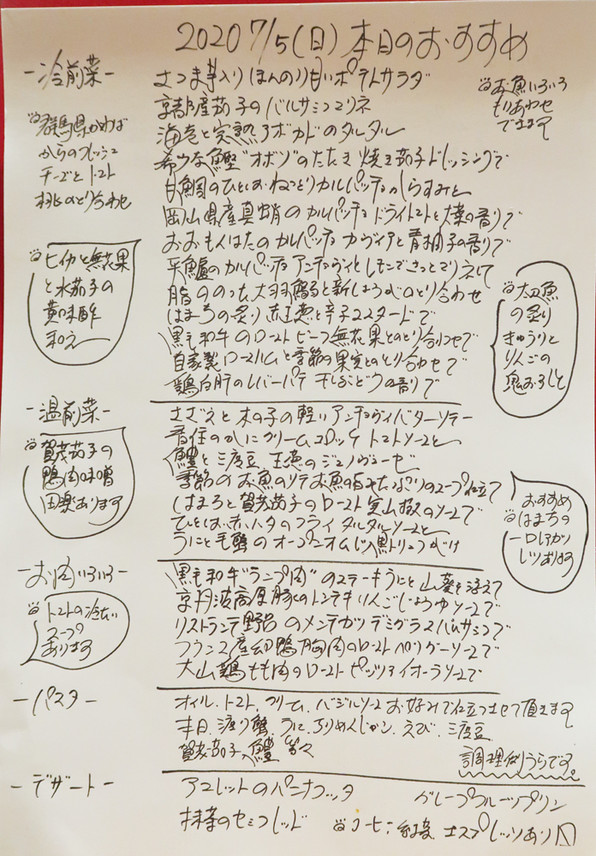 2020 7/5(日)本日のおすすめ
-冷前菜-
さつま芋入りほんのり甘いポテトサラダ
京都産茄子のバルサミコマリネ
海老と完熟アボカドのタルタル
希少な鰹"オボソ"のたたき 焼き茄子ドレッシングで
甘鯛のひとしおねっとりカルパッチョのしらすみと
岡山県産真蛸のカルパッチョ ドライトマトと大葉の香りで
おおもんはたのカルパッチョ カヴィアと青柚子の香りで
平鱸のカルパッチョ アンチョヴィとレモンでさっとマリネして
脂ののった大羽鰯と新しょうがのとり合わせ
はまちの炙り 赤玉葱と辛子マスタードで
黒毛和牛のローストビーフ 無花果とのとり合わせで
自家製ロースハムと季節の果実とのとり合わせで
鶏白肝のレバーパテ 干しぶどうの香りで
お魚いろいろ
もりあわせ
できます
群馬県かわば
からのフレッシュ
チーズとトマト
桃のとり合わせ
七伊と無花果
と水茄子の
黄味酢
和え
太刀魚
の炙り
きゅうりと
りんごの
鬼おろしと
-温前菜-
さざえと木の子の軽いアンチョヴィバターソテー
香住のかにクリームコロッケ トマトソースと
鱧と三度豆 玉葱のジェノヴェーゼ
季節のお魚のソテー お魚の旨みたっぷりのスープ仕立て
はまちと賀茂茄子のロースト 実山椒のソースで
てひとしお赤ハタのフライ タルタルソースと
うにと毛蟹のオープンオムレツ 黒トリュフがけ
賀茂茄子の
鴨肉味噌
田楽あります
おすすめ
はまちの
一口レアカツ
レツあります
-お肉いろいろ-
黒毛和牛"ランプ肉"のステーキ うにと山葵を添えて
京丹波高原豚のトンテキ りんごじょうゆソースで
リストランテ野呂のメンチカツ デミグラスバルサミコで
フランス産幼鴨胸肉のロースト ペッパーソースで
大山鶏もも肉のロースト ピッツァイオーラソースで
トマトの冷たい
スープ
あります
-パスタ-
オイル、トマト、クリーム、バジルソース お好みで仕立てさせて頂きます
本日、渡り蟹、うに、ちりめんじゃこ、えび、三度豆
賀茂茄子、鱧 等々
調理例うらです。
-デザート-
アマレットのパンナコッタ
グレープフルーツプリン
抹茶のセミフレッド
コーヒー、紅茶、エスプレッソあり〼